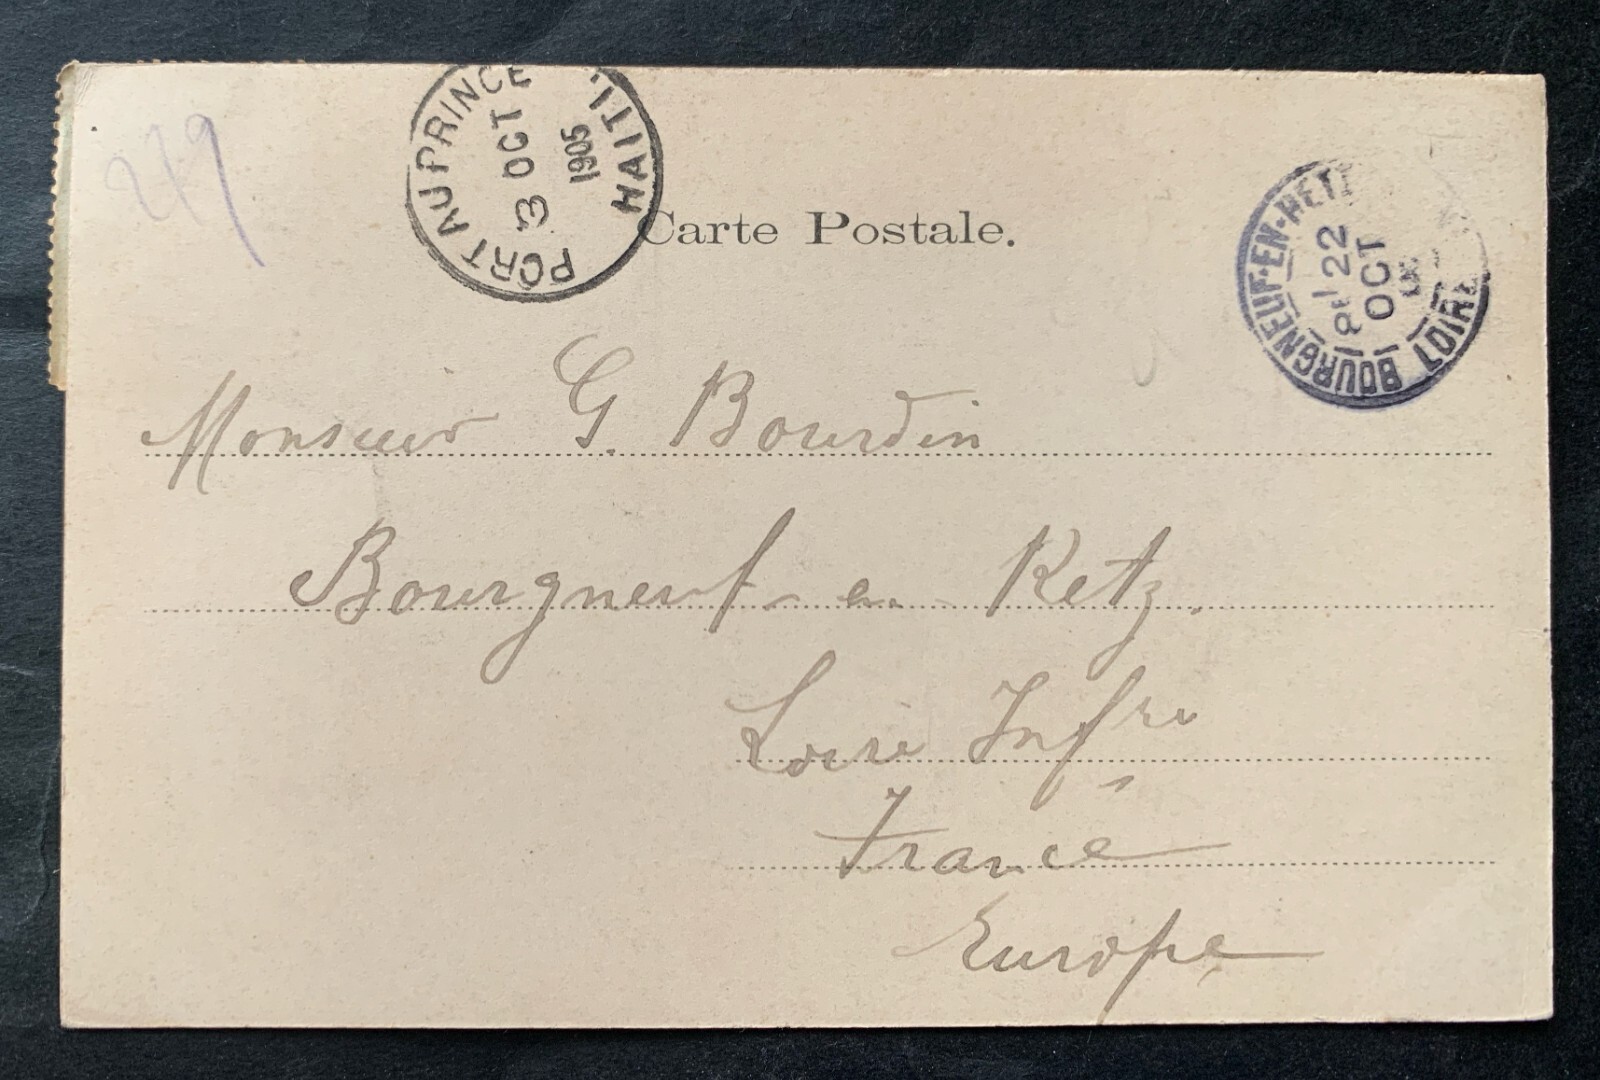 279
PORT AU PRINCE HAITI.
3 OCT
1905
Carte Postale.
BOURGNEUF-EN-RETZ LOIRE
22
OCT
Monsieur G. Bourdin
Bourgneuf en Retz.
Loire Infre
France
Europe